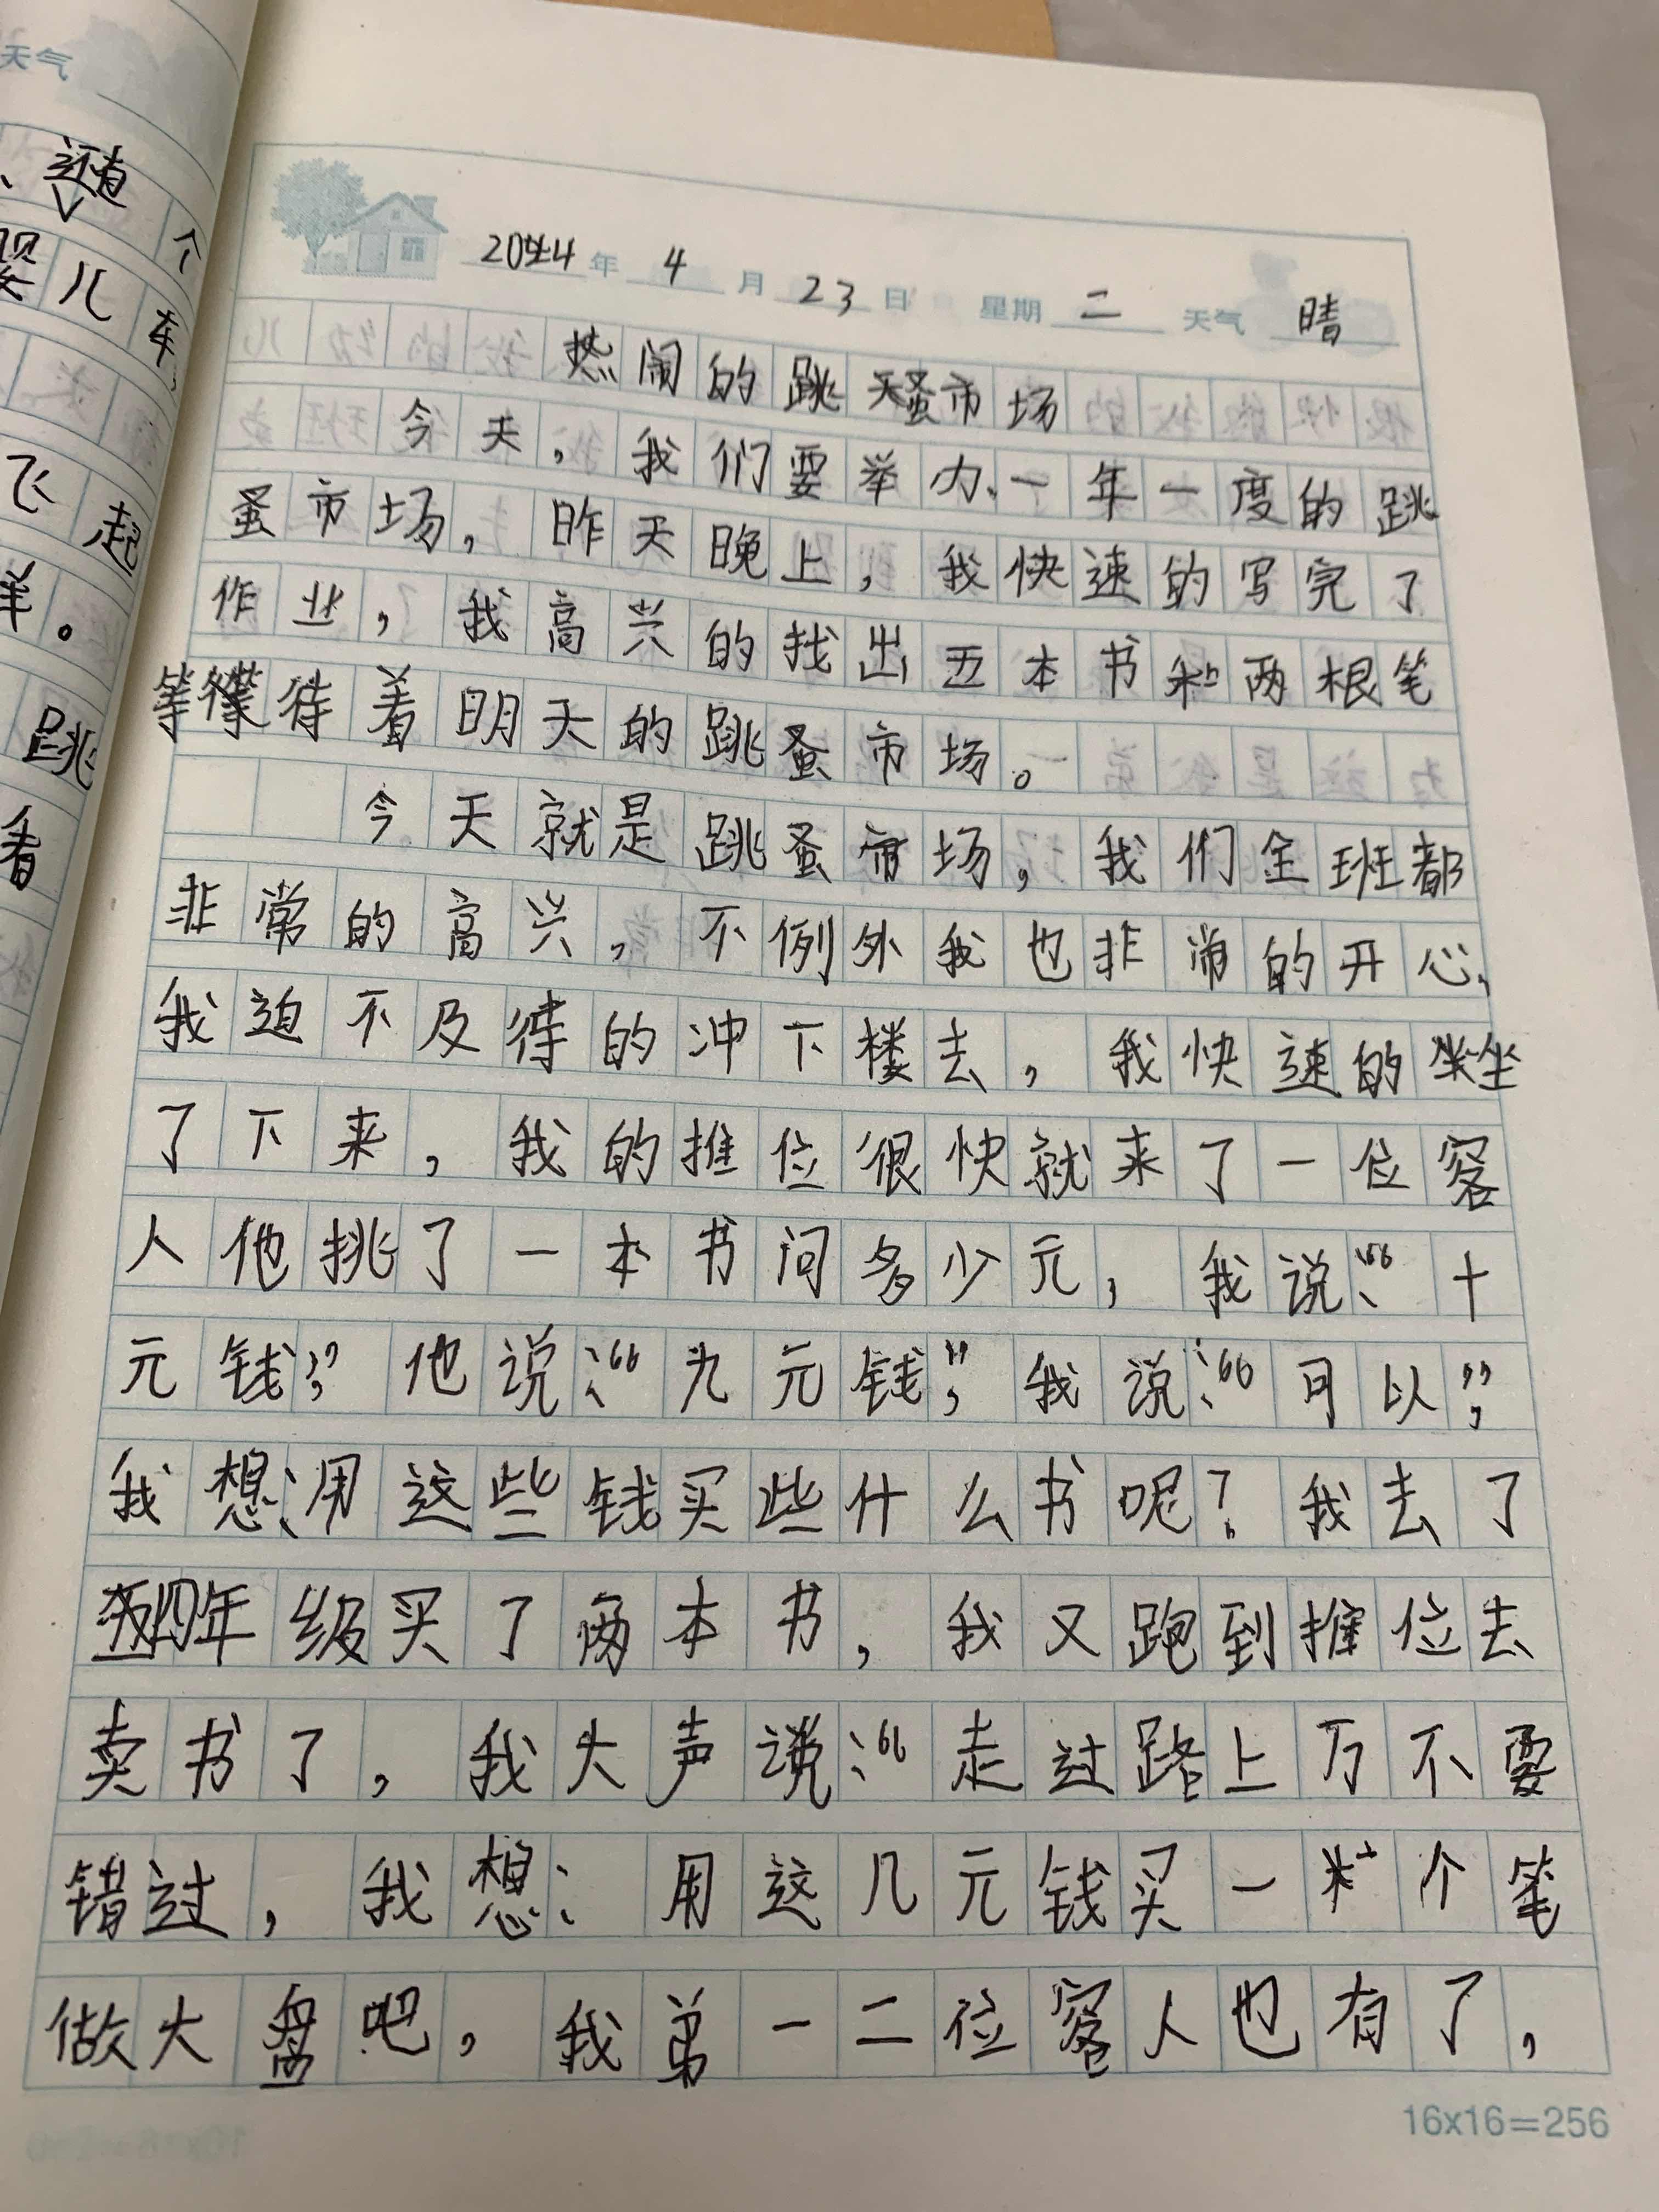 天气
还有
个
婴儿车
飞起
羊。
跳
看
2024年 4月 23日 星期 二 天气 晴
热闹的跳蚤市场
今天，我们要举办一年一度的跳
蚤市场，昨天晚上，我快速的写完了
作业，我高兴的找出五本书和两根笔
等待着明天的跳蚤市场。
今天就是跳蚤市场，我们全班都
非常的高兴，不例外我也非常的开心、
我迫不及待的冲下楼去，我快速的坐
了下来，我的推位很快就来了一位客
人他挑了一本书问多少元，我说：“十
元钱”，他说：“九元钱”，我说：“可以”，
我想：用这些钱买些什么书呢？我去了
四年级买了两本书，我又跑到摊位去
卖书了，我大声说：“走过路上万不要
错过，我想：用这几元钱买一个笔
做大盘吧，我弟一二位客人也有了，
16x16=256